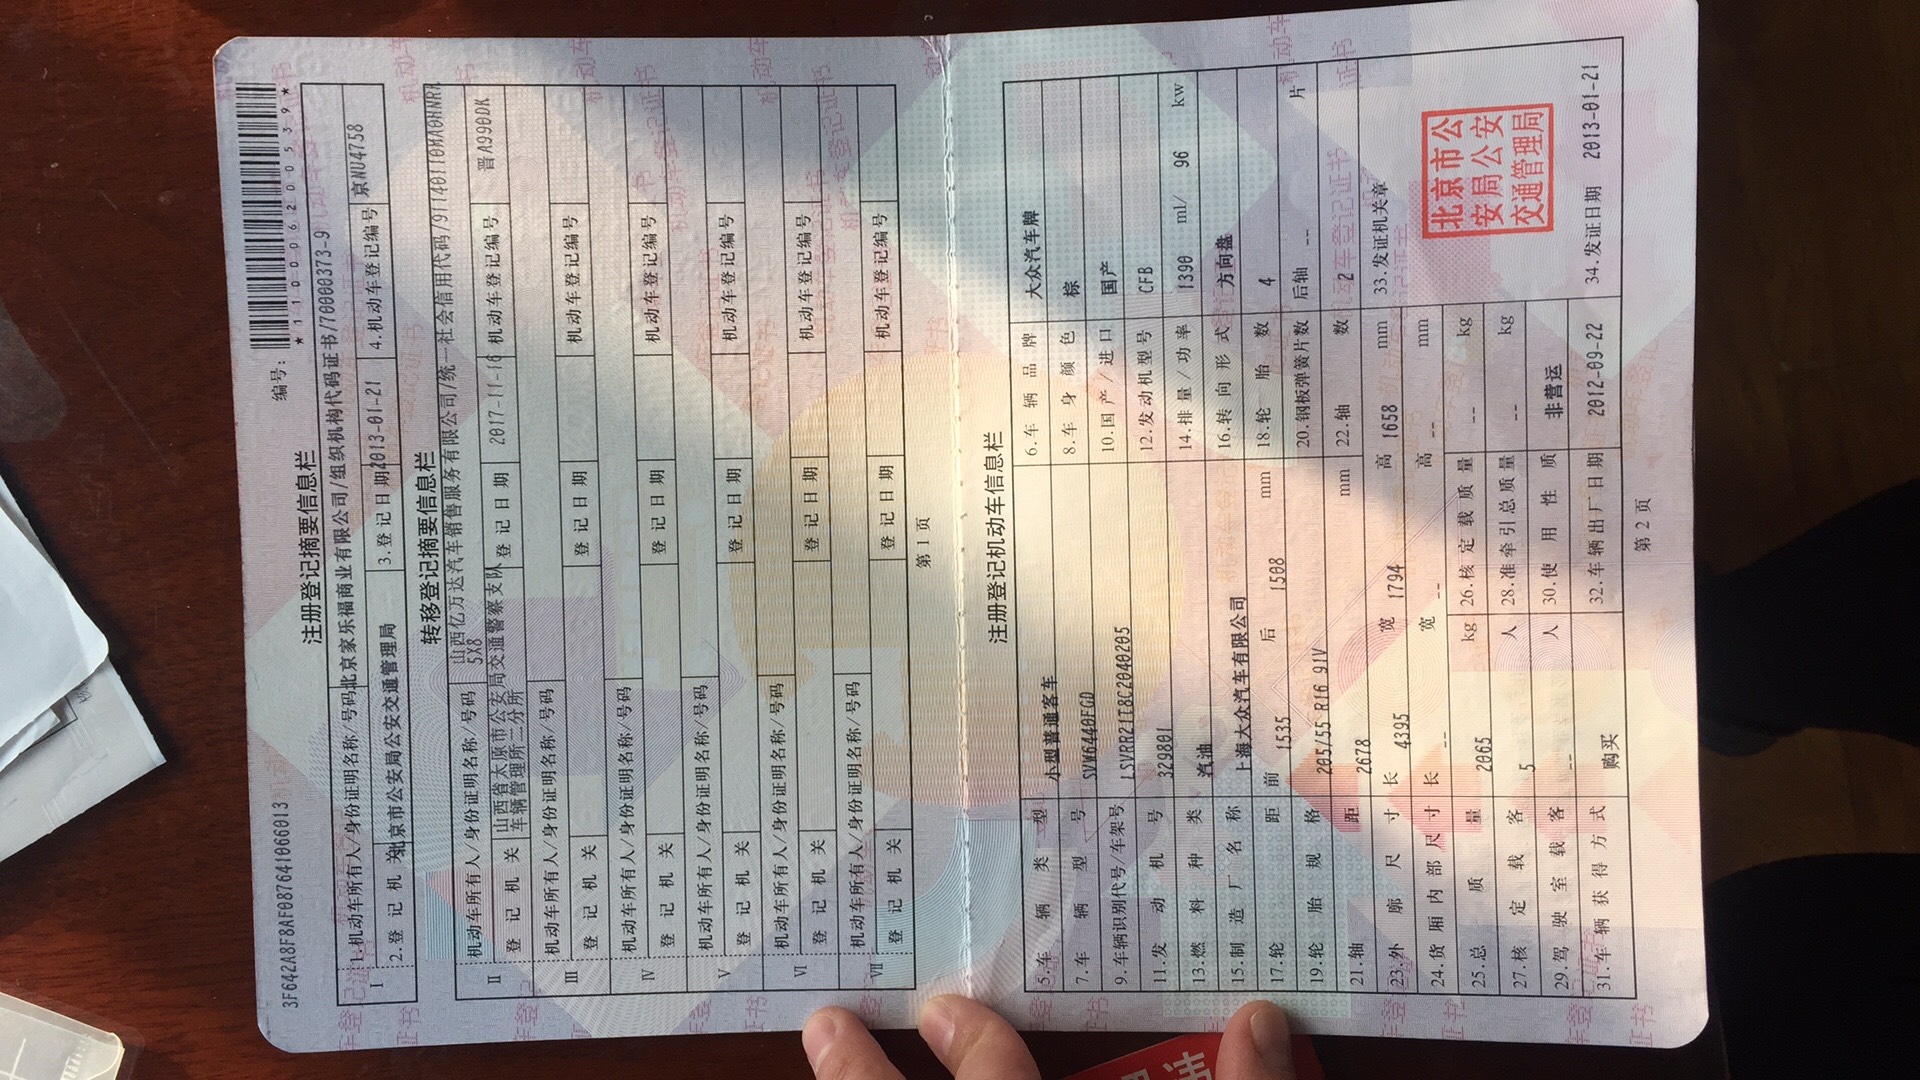 3F642A8F8AF08764106​6013
编号:
*110006200539*
注册登记摘要信息栏
Ⅰ 1.机动车所有人/身份证明名称/号码 北京家乐福商业有限公司/组织机构代码证书/70000373-9
2.登记机关 北京市公安局公安交通管理局 3.登记日期 2013-01-21 4.机动车登记编号 京NU4758
转移登记摘要信息栏
Ⅱ 机动车所有人/身份证明名称/号码 山西亿万达汽车销售服务有限公司/统一社会信用代码/91140110MA0HNR1
5X8
登记机关 山西省太原市公安局交通警察支队
车辆管理所二分所 登记日期 2017-11-16 机动车登记编号 晋A990DK
Ⅲ 机动车所有人/身份证明名称/号码
登记机关 登记日期 机动车登记编号
Ⅳ 机动车所有人/身份证明名称/号码
登记机关 登记日期 机动车登记编号
Ⅴ 机动车所有人/身份证明名称/号码
登记机关 登记日期 机动车登记编号
Ⅵ 机动车所有人/身份证明名称/号码
登记机关 登记日期 机动车登记编号
Ⅶ 机动车所有人/身份证明名称/号码
登记机关 登记日期 机动车登记编号
第1页
注册登记机动车信息栏
5.车辆类型 小型普通客车 6.车辆品牌 大众汽车牌
7.车辆型号 SVW6440FGD 8.车身颜色 棕
9.车辆识别代号/车架号 LSVRR21T8C2040205 10.国产/进口 国产
11.发动机号 329801 12.发动机型号 CFB
13.燃料种类 汽油 14.排量/功率 1390 ml/ 96 kw
15.制造厂名称 上海大众汽车有限公司 16.转向形式 方向盘
17.轮距 前 1535 后 1508 mm 18.轮胎数 4
19.轮胎规格 205/55 R16 91V 20.钢板弹簧片数 后轴 -- 片
21.轴距 2678 mm 22.轴数 2
23.外廓尺寸 长 4395 宽 1794 高 1658 mm 33.发证机关章
24.货厢内部尺寸 长 -- 宽 -- 高 -- mm
25.总质量 2065 kg 26.核定载质量 -- kg
27.核定载客 5 人 28.准牵引总质量 -- kg
29.驾驶室载客 -- 人 30.使用性质 非营运
31.车辆获得方式 购买 32.车辆出厂日期 2012-09-22 34.发证日期 2013-01-21
北京市公
安局公安
交通管理局
第2页